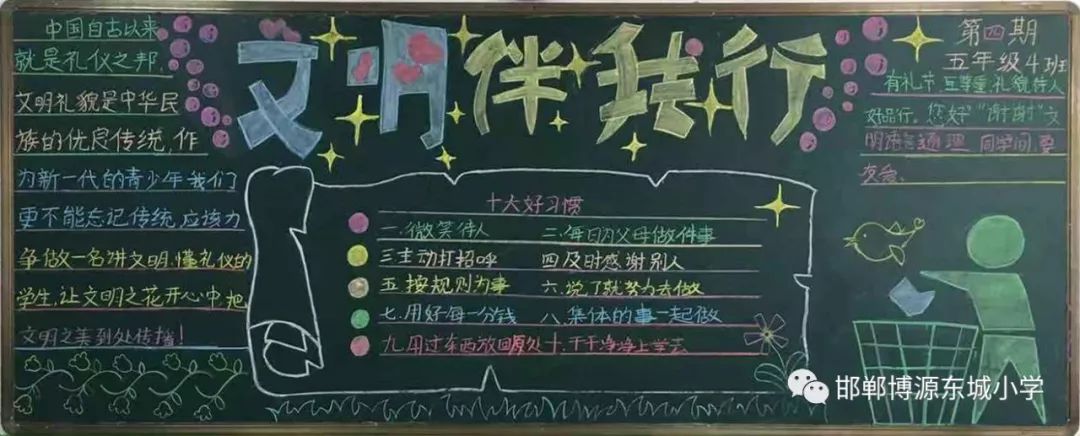 文明伴我行
中国自古以来
就是礼仪之邦,
文明礼貌是中华民
族的优良传统,作
为新一代的青少年我们
更不能忘记传统,应该力
争做一名讲文明,懂礼仪的
学生,让文明之花开心中把
文明之美到处传播!
十大好习惯
一.微笑待人 二.每日为父母做件事
三主动打招呼 四及时感谢别人
五按规则为事 六.说了就努力去做
七.用好每一分钱 八.集体的事一起做
九用过东西放回原处 十.干干净净上学去
第四期
五年级4班
有礼节,互尊重,礼貌待人
好品行。您好""谢谢"文
明语言通理 同学间要
友爱、
邯郸博源东城小学